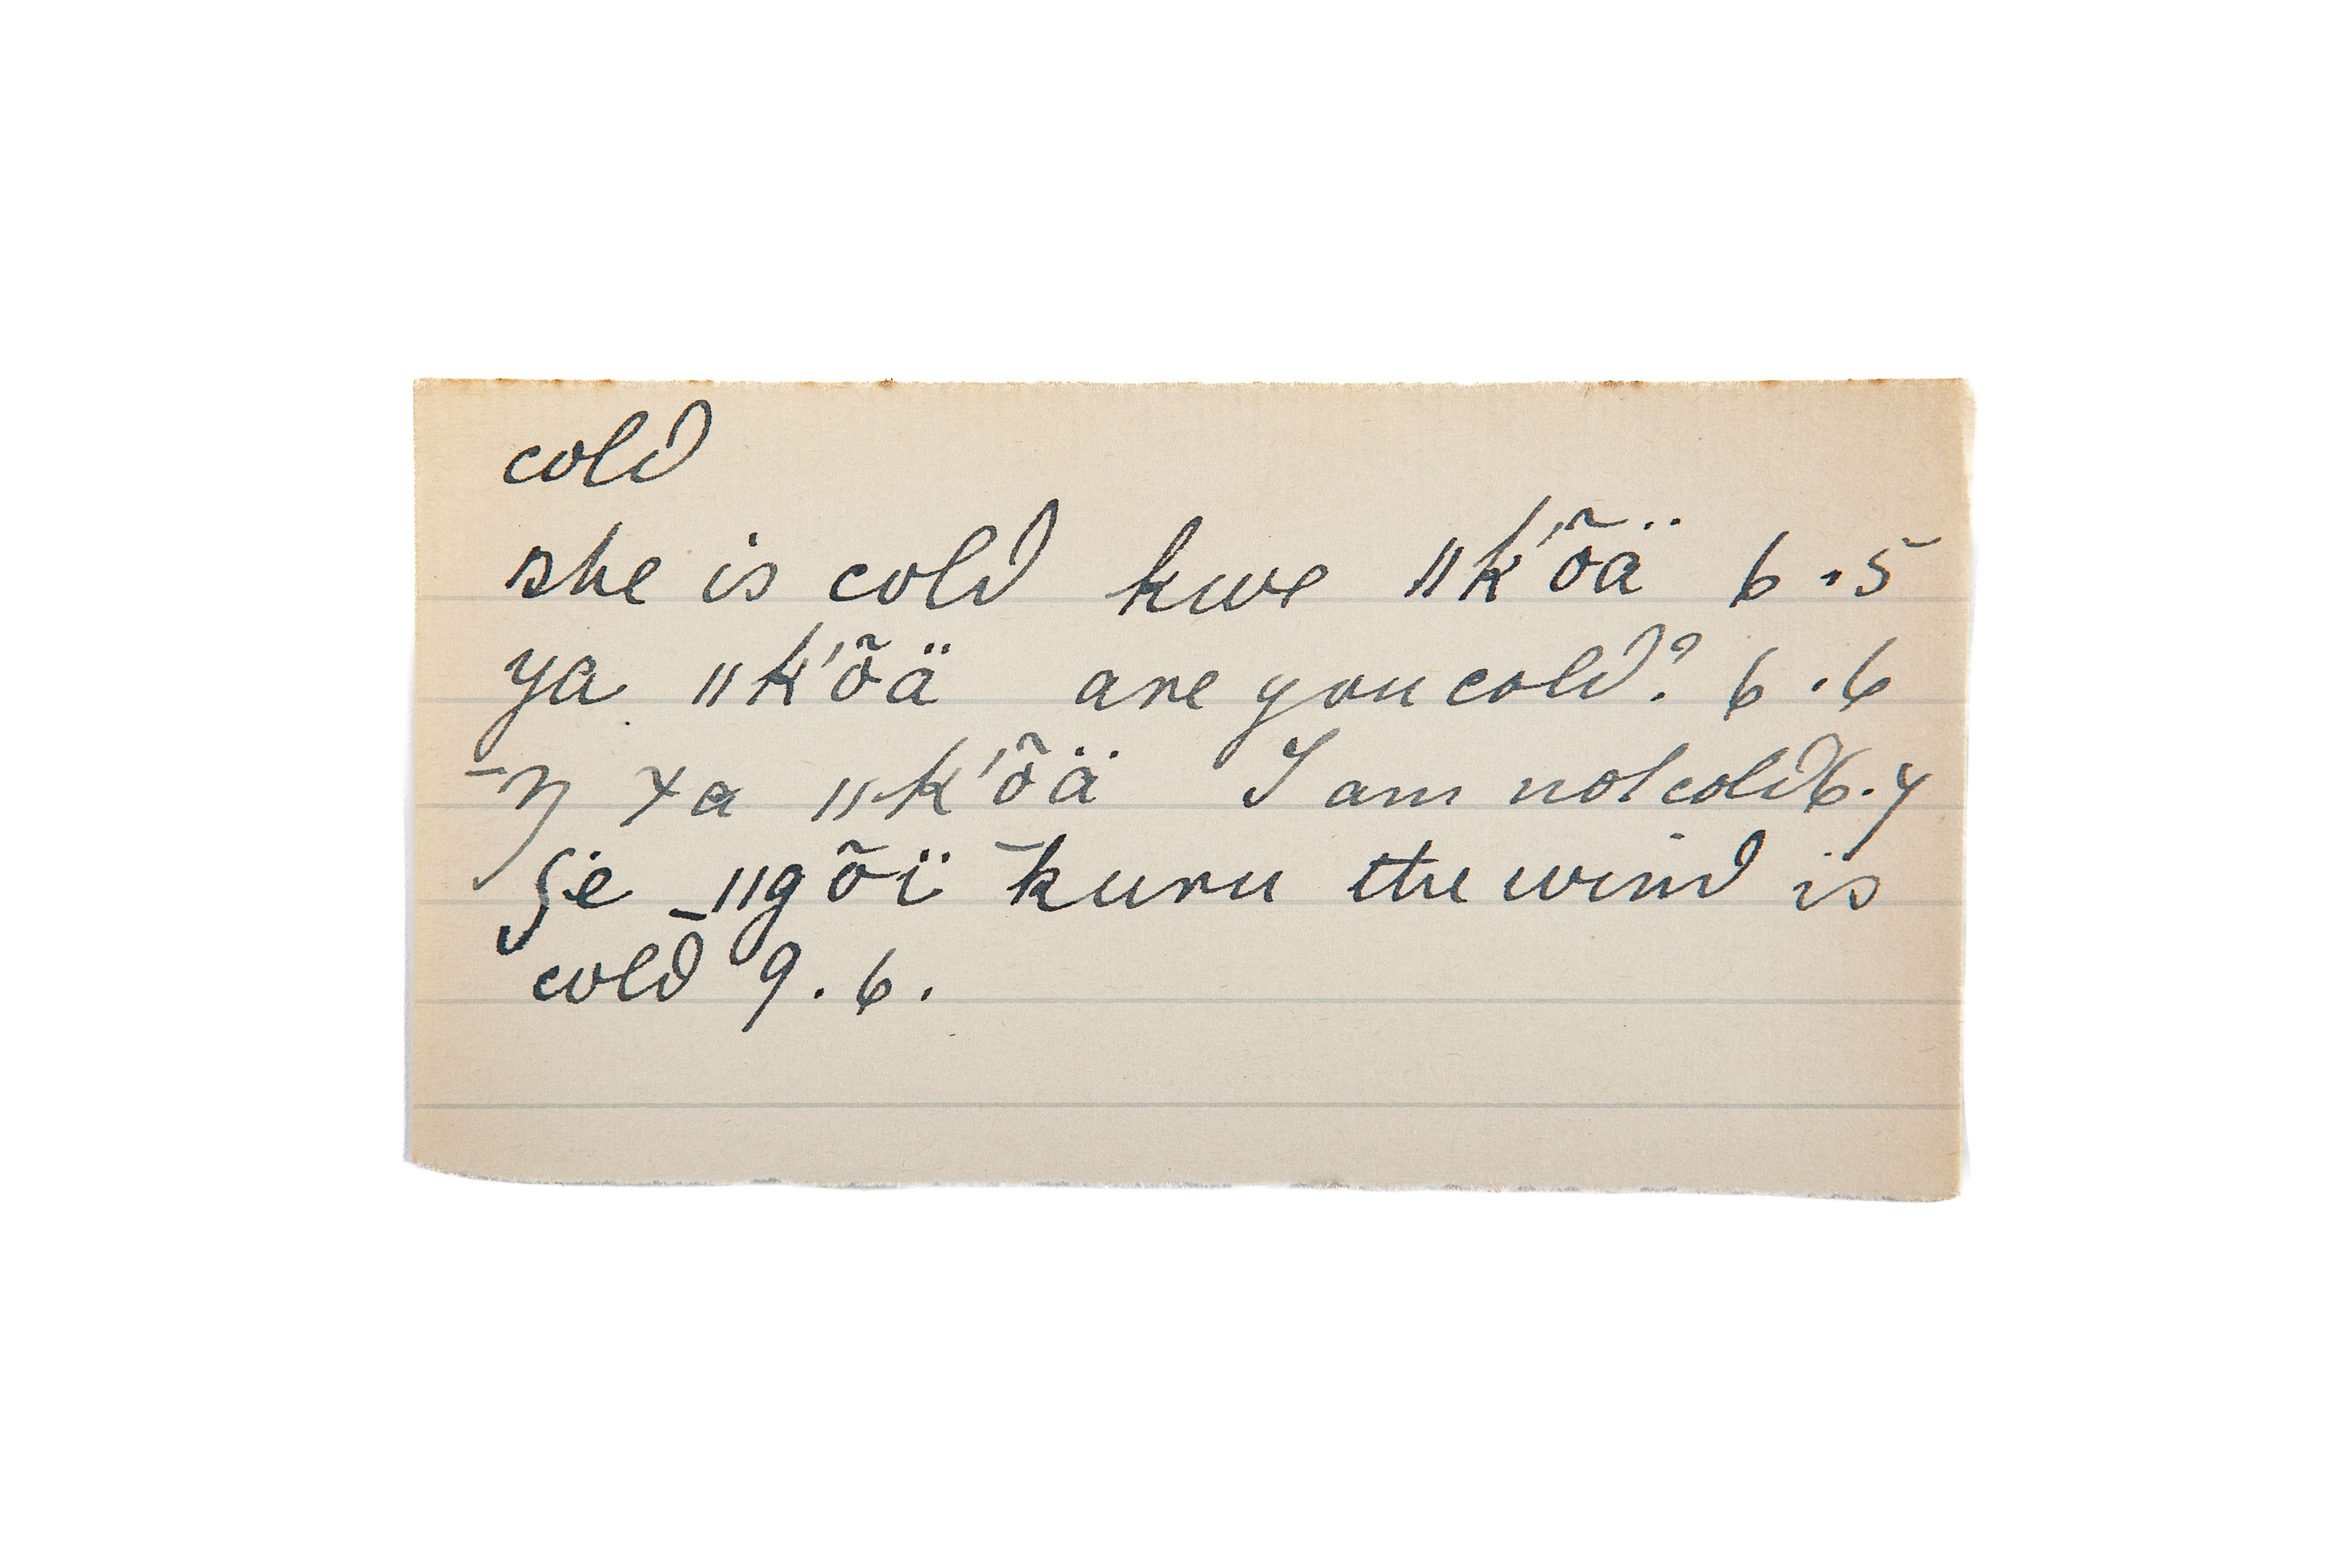 cold
she is cold kwe ǁk'õä 6.5
ya ǁk'õä are you cold? 6.6
¯ŋ xa ǁk'õä I am not cold 6.7
ʃe _ǁgõï ¯kuru the wind is
cold 9.6.